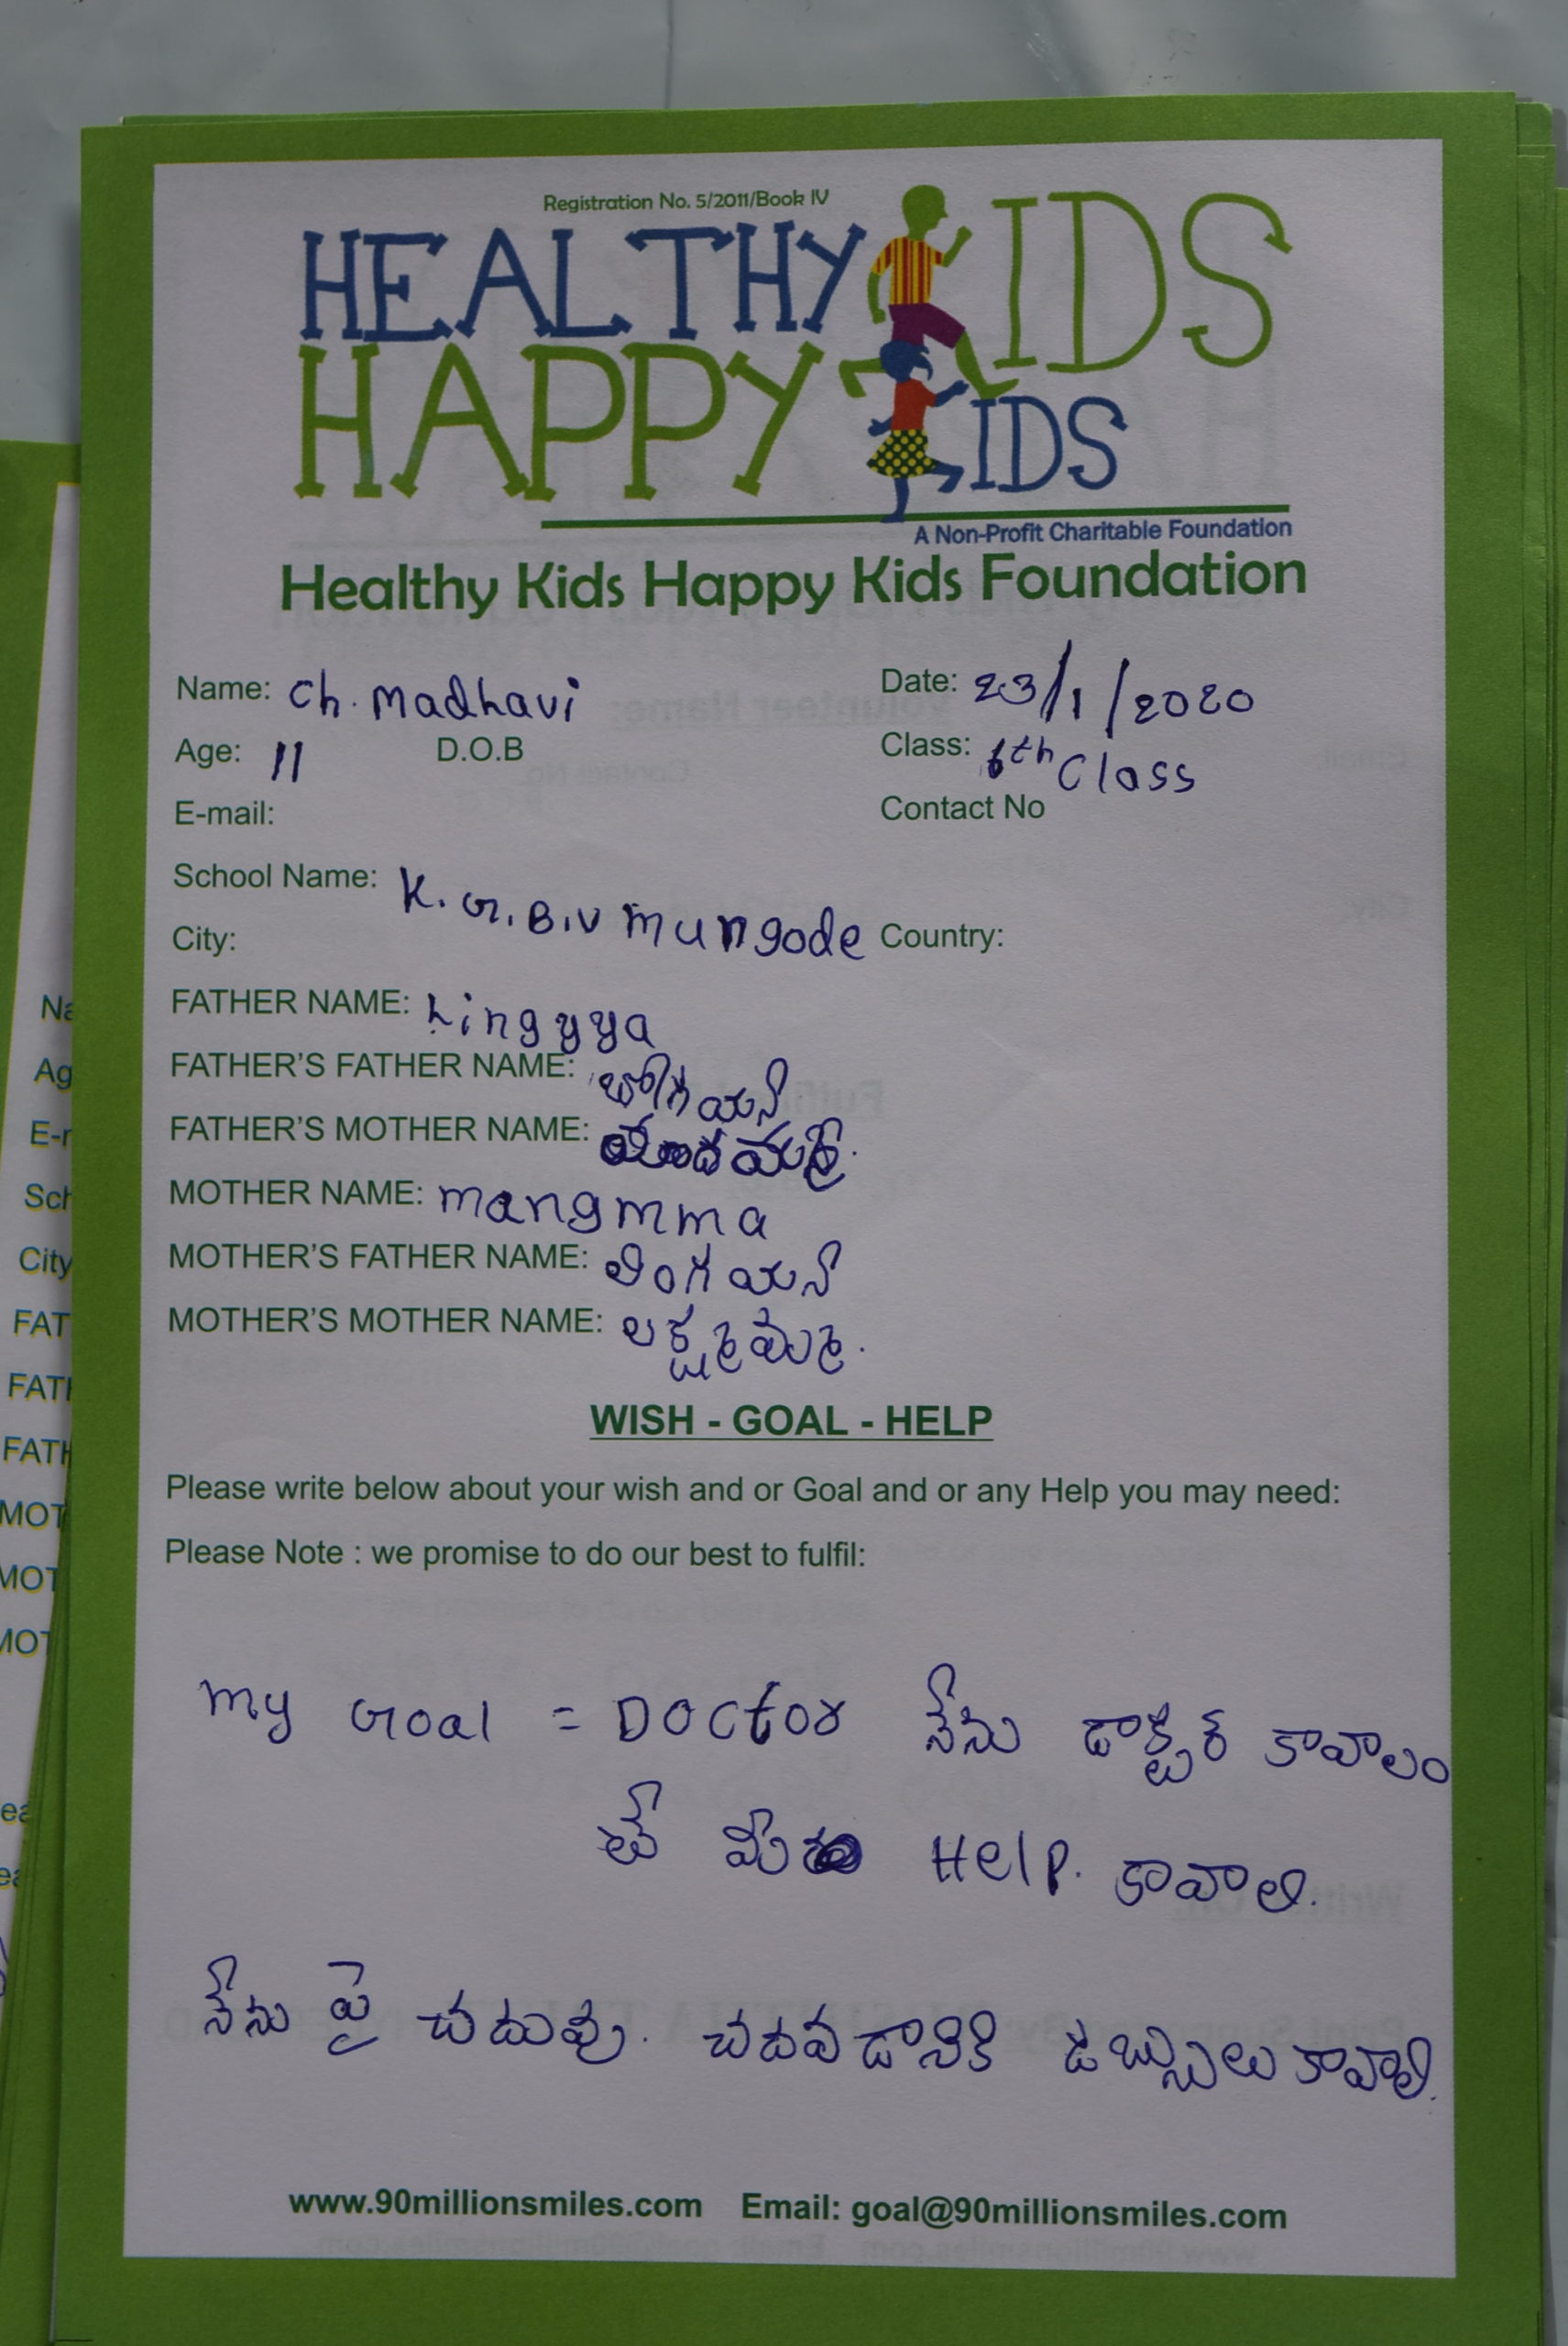 Registration No. 5/2011/Book IV
HEALTHY KIDS
HAPPY KIDS
A Non-Profit Charitable Foundation
Healthy Kids Happy Kids Foundation
Name: Ch. Madhavi Date: 23/1/2020
Age: 11 D.O.B Class: 6th Class
E-mail: Contact No
School Name: K.G.B.V Mungode
City: Country:
FATHER NAME: Lingyya
FATHER'S FATHER NAME:
FATHER'S MOTHER NAME:
MOTHER NAME: mangmma
MOTHER'S FATHER NAME: లింగయస
MOTHER'S MOTHER NAME: లక్ష్మమ్మ.
WISH - GOAL - HELP
Please write below about your wish and or Goal and or any Help you may need:
Please Note : we promise to do our best to fulfil:
My Goal = Doctor నేను డాక్టర్ కావాలం
టే మీరు Help. కావాలి.
నేను పై చదువు. చదవడానికి డబ్బులు కావాలి.
www.90millionsmiles.com Email: goal@90millionsmiles.com
Na
Ag
E-r
Sch
City
FAT
FATH
FATH
MOT
MOT
MOT
ea
ea